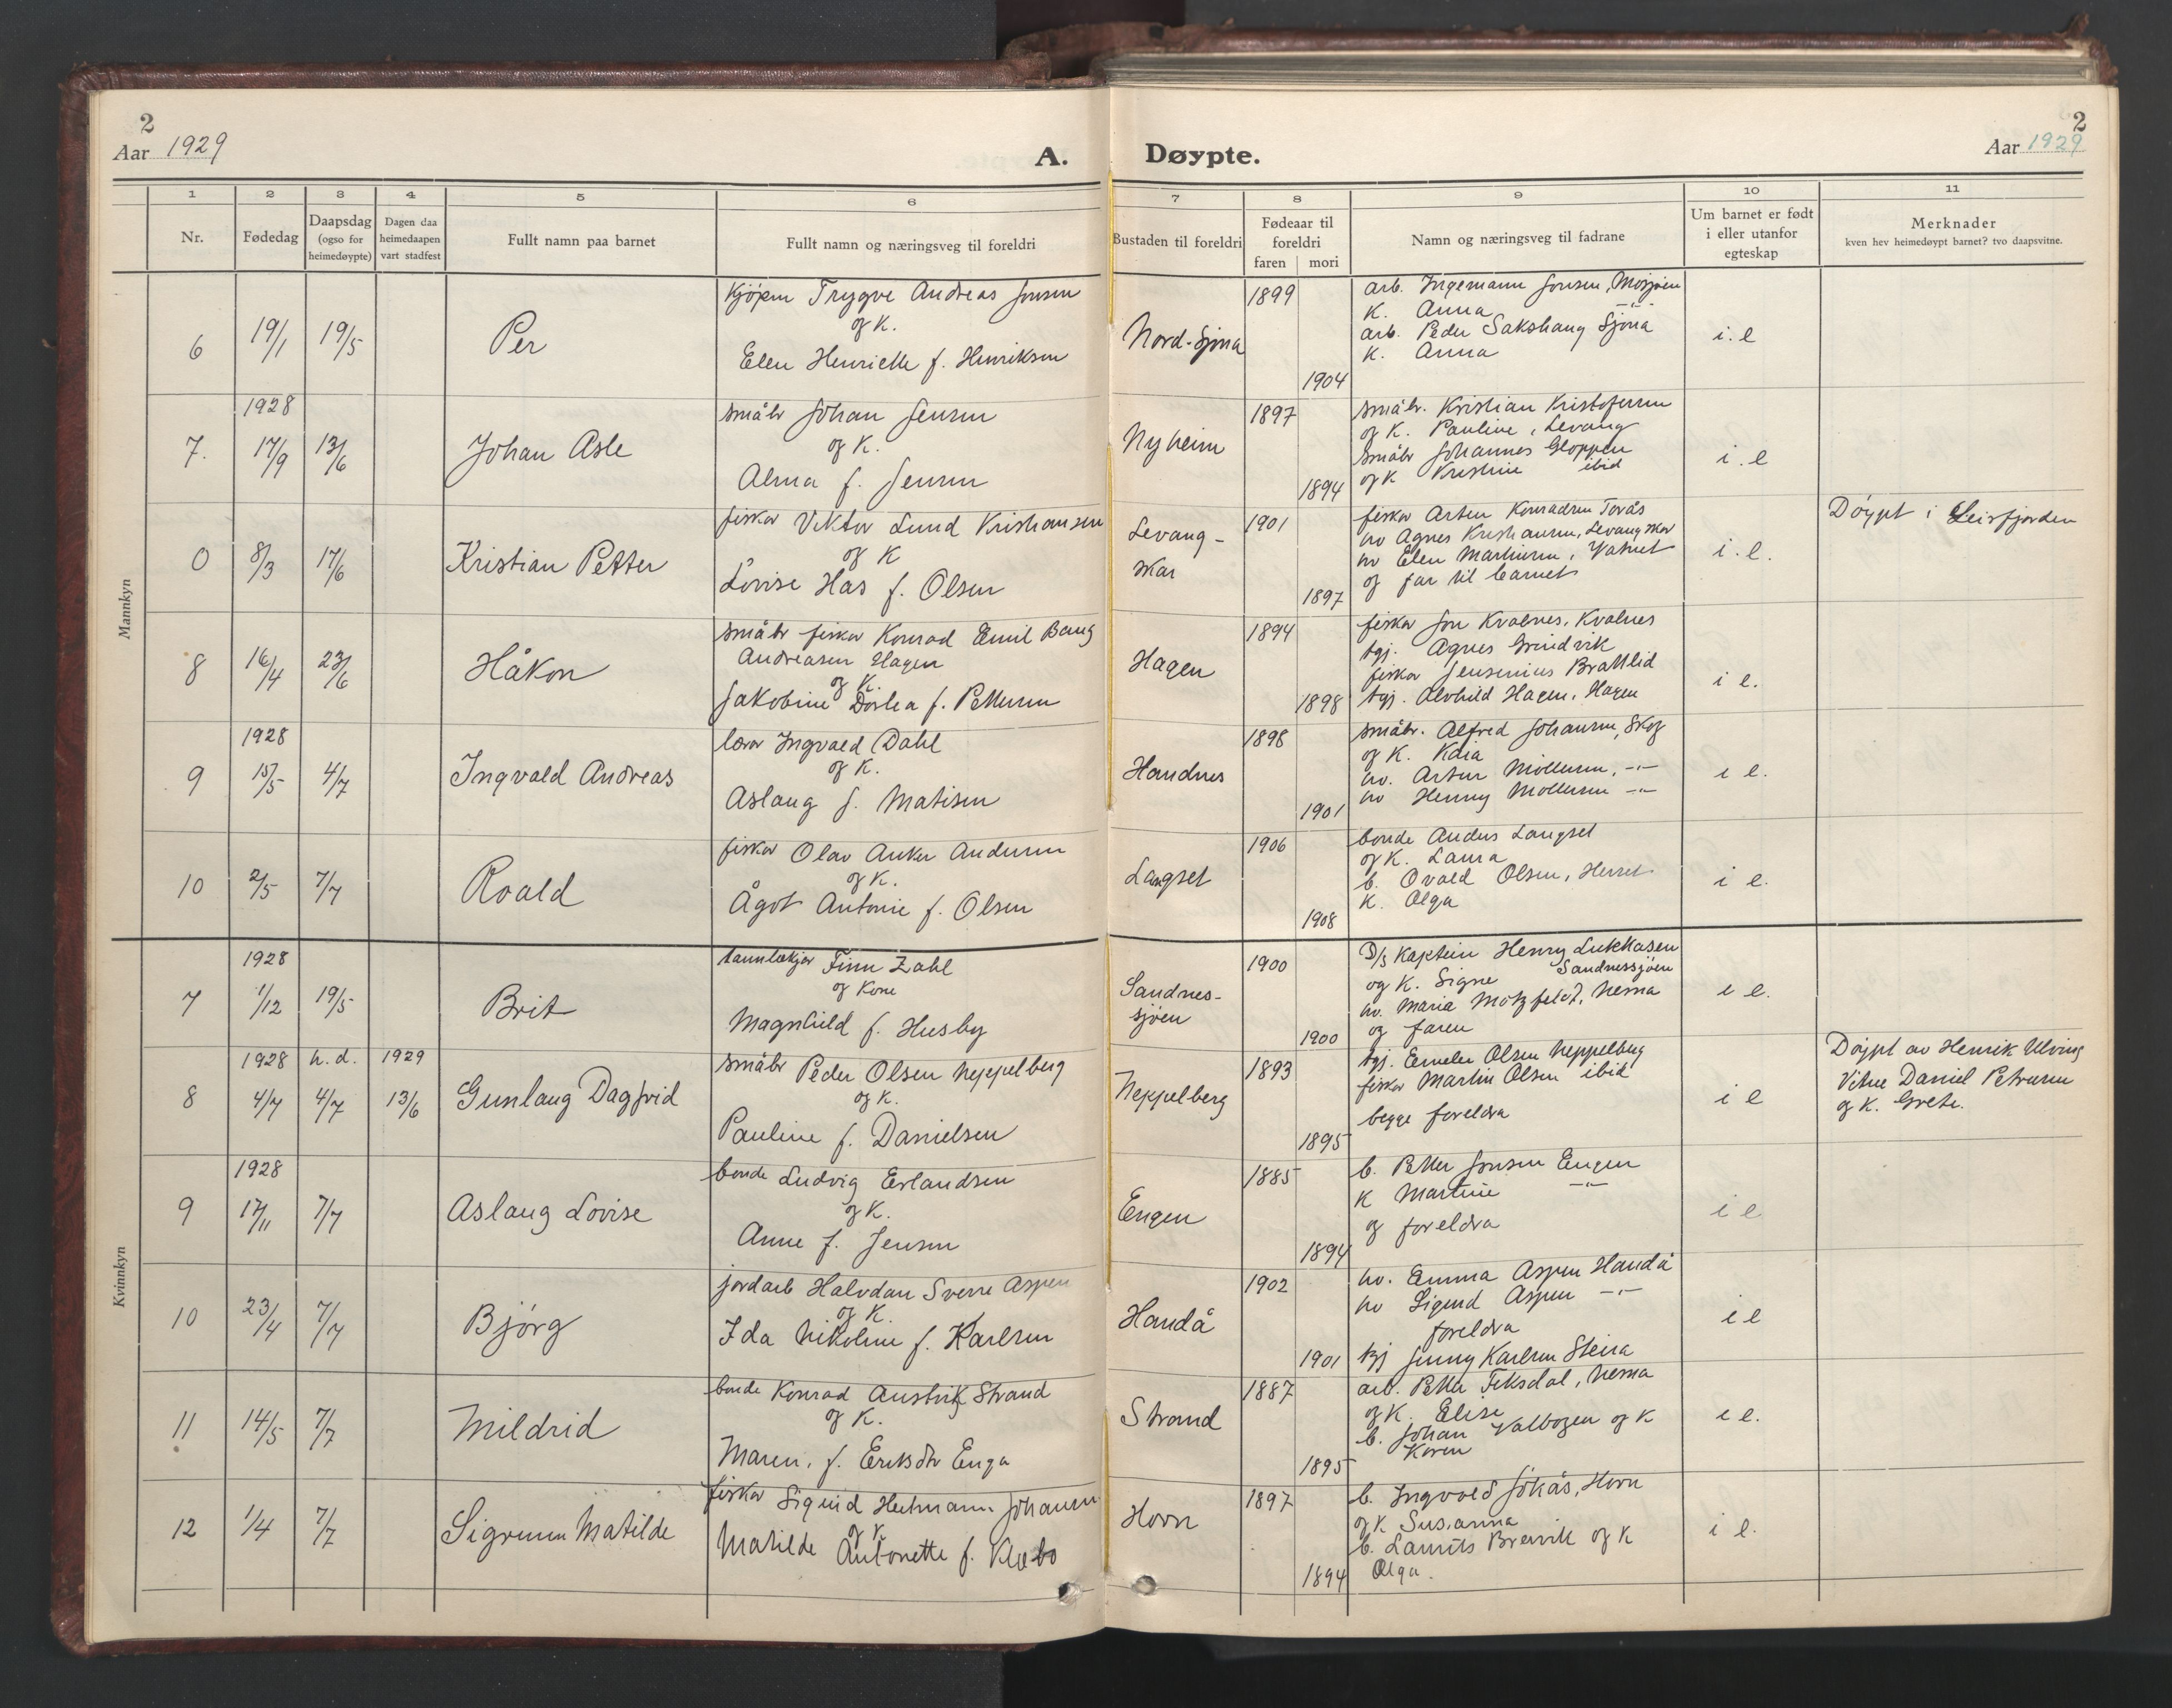 2
Aar 1929
A.
Døypte.
2
Aar 1929
1 2 3 4 5 6 7 8 9 10 11
Nr.
Fødedag
Daapsdag (ogso for heimedøypte)
Dagen daa heimedaapen vart stadfest
Fullt namn paa barnet
Fullt namn og næringsveg til foreldri
Bustaden til foreldri
Fødeaar til foreldri
faren mori
Namn og næringsveg til fadrane
Um barnet er født i eller utanfor egteskap
Merknader
kven hev heimedøypt barnet? tvo daapsvitne.
Mannkyn
6 19/1 19/5 Per
Kjöpm Trygve Andreas Jonsen
og K.
Elen Henrikke f. Henriksen
Nord-Sjona
1899
1904
arb. Ingemann Jonsen, Mosjøen
K. Anna —"—
arb. Peder Sakshaug Sjona
K. Anna
i. e
7. 1928
17/9 13/6 Johan Asle
småbr Johan Jensen
og K.
Alma f. Jensen
Nyheim
1897
1894
småbr. Kristian Kristofersen
og K. Pauline, Levang
småbr Johannes Gloppen
og K Kristine ibid
i. e
0 8/3 17/6 Kristian Petter
fiskar Viktor Lund Kristiansen
og K
Lovise Has f. Olsen
Levang-
skar
1901
1897
fiskar Artur Konradsen Tovås
hv Agnes Kristiansen, Levangskar
hv Elen Martinsen, Vatnet
og far til barnet
i. e.
Døypt i Leirfjorden
8 16/4 23/6 Håkon
småbr fiskar Konrad Emil Bang
Andreasen Hagen
og K.
Jakobine Dorlea f. Pettersen
Hagen
1894
1898
fiskar Jon Kvalnes, Kvalnes
tgj. Agnes Grindvik
fiskar Jensenius Brattlid
tgj. Alvhild Hagen, Hagen
i e.
9 1928
15/5 4/7 Ingvald Andreas
lærar Ingvald Dahl
og K.
Aslaug f. Matisen
Handnes
1898
1901
småbr. Alfred Johansen, Skog
og K. Kaia
hv. Artur Mollersen, —"—
hv Henny Mollersen —"—
i e.
10 2/5 7/7 Roald
fiskar Olav Anker Andersen
og K.
Ågot Antonie f. Olsen
Langset
1906
1908
bonde Anders Langset
og K. Laura
b. Ovald Olsen,
K. Olga
i e.
Kvinnkyn
7 1928
1/12 19/5 Brit
tannlækjar Finn Zahl
og Kone
Magnhild f. Husby
Sandnes-
sjöen
1900
1900
D/S Kaptein Henry Lukkasen
og K. Signe Sandnessjöen
hv. Maria Motzfeldt, Nesna
og faren
i e.
8 1928 h. d. 1929
4/7 4/7 13/6 Gunlaug Dagfrid
småbr Peder Olsen Neppelberg
og K.
Pauline f. Danielsen
Neppelberg
1893
1895
tgj. Emelie Olsen Neppelberg
fiskar Martin Olsen ibid
begge foreldra
i e
Döypt av Henrik Ulving
Vitne Daniel Petersen
og K. Grete.
9 1928
17/11 7/7 Aslaug Lovise
bonde Ludvig Erlandsen
og K.
Anne f. Jensen
Engen
1885
1894
b. Petter Jonsen Engen
K Martine —"—
og foreldra
i e
10 23/4 7/7 Bjørg
jordarb Halvdan Sverre Aspen
og K.
Ida Nikoline f. Karlsen
Handå
1902
1901
hv. Emma Aspen Handå
hv Sigurd Aspen —"—
foreldra
tgj Jenny Karlsen Steira
i e
11 14/5 7/7 Mildrid
bonde Konrad Austvik Strand
og K.
Maren, f. Eriksdtr Enga
Strand
1887
1895
arb. Petter Feksdal, Nesna
og K. Elise
b. Johan Valbogen og K
Karen
i e.
12 1/4 7/7 Sigrunn Matilde
fiskar Sigurd Johansen
og K
Matilde Antonette f. Klæbo
Horn
1897
1894
b. Ingvald Johås, Horn
og K Susanna
b. Laurits Breivik og K
Olga.
i e.